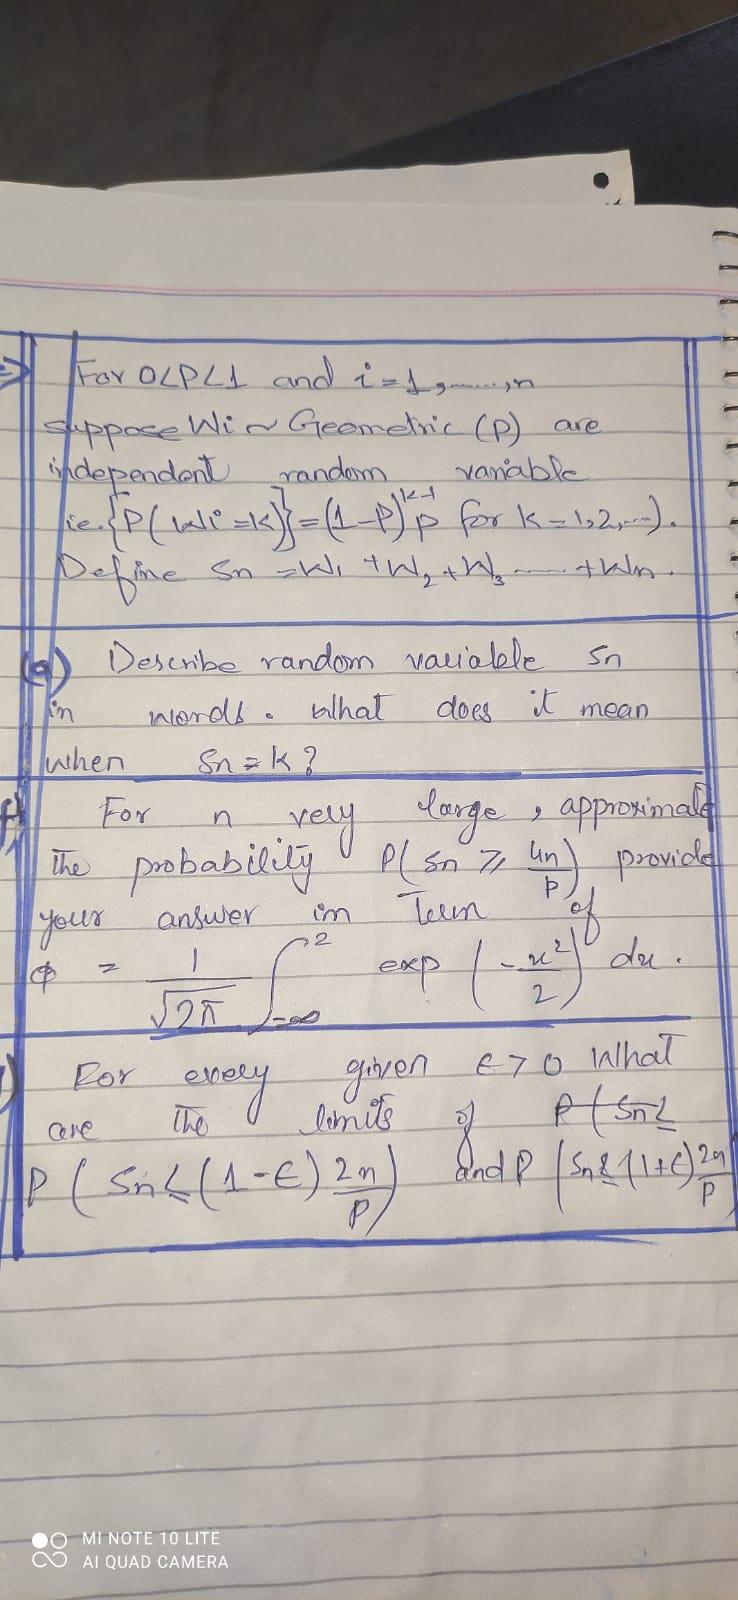 For 0<P<1 and i=1,......,n
suppose Wi ~ Geometric (P) are
independent random variable
ie.{P(Wi=k)}=(1-P)^k-1 p for k=1,2,...).
Define Sn =W1 +W2+W3 ---- +Wn.
(a) Describe random variable Sn
in words. What does it mean
when Sn=k?
For n very large, approximate
The probability P(Sn ≥ 4n/P) provide
your answer in Term of
φ = 1/√2π ∫-∞^2 exp (-x²/2) dx.
For every given ε>0 What
are The limits of P(Sn≤
P(Sn≤(1-ε) 2n/P) and P(Sn≤(1+ε) 2n/P
MI NOTE 10 LITE
AI QUAD CAMERA